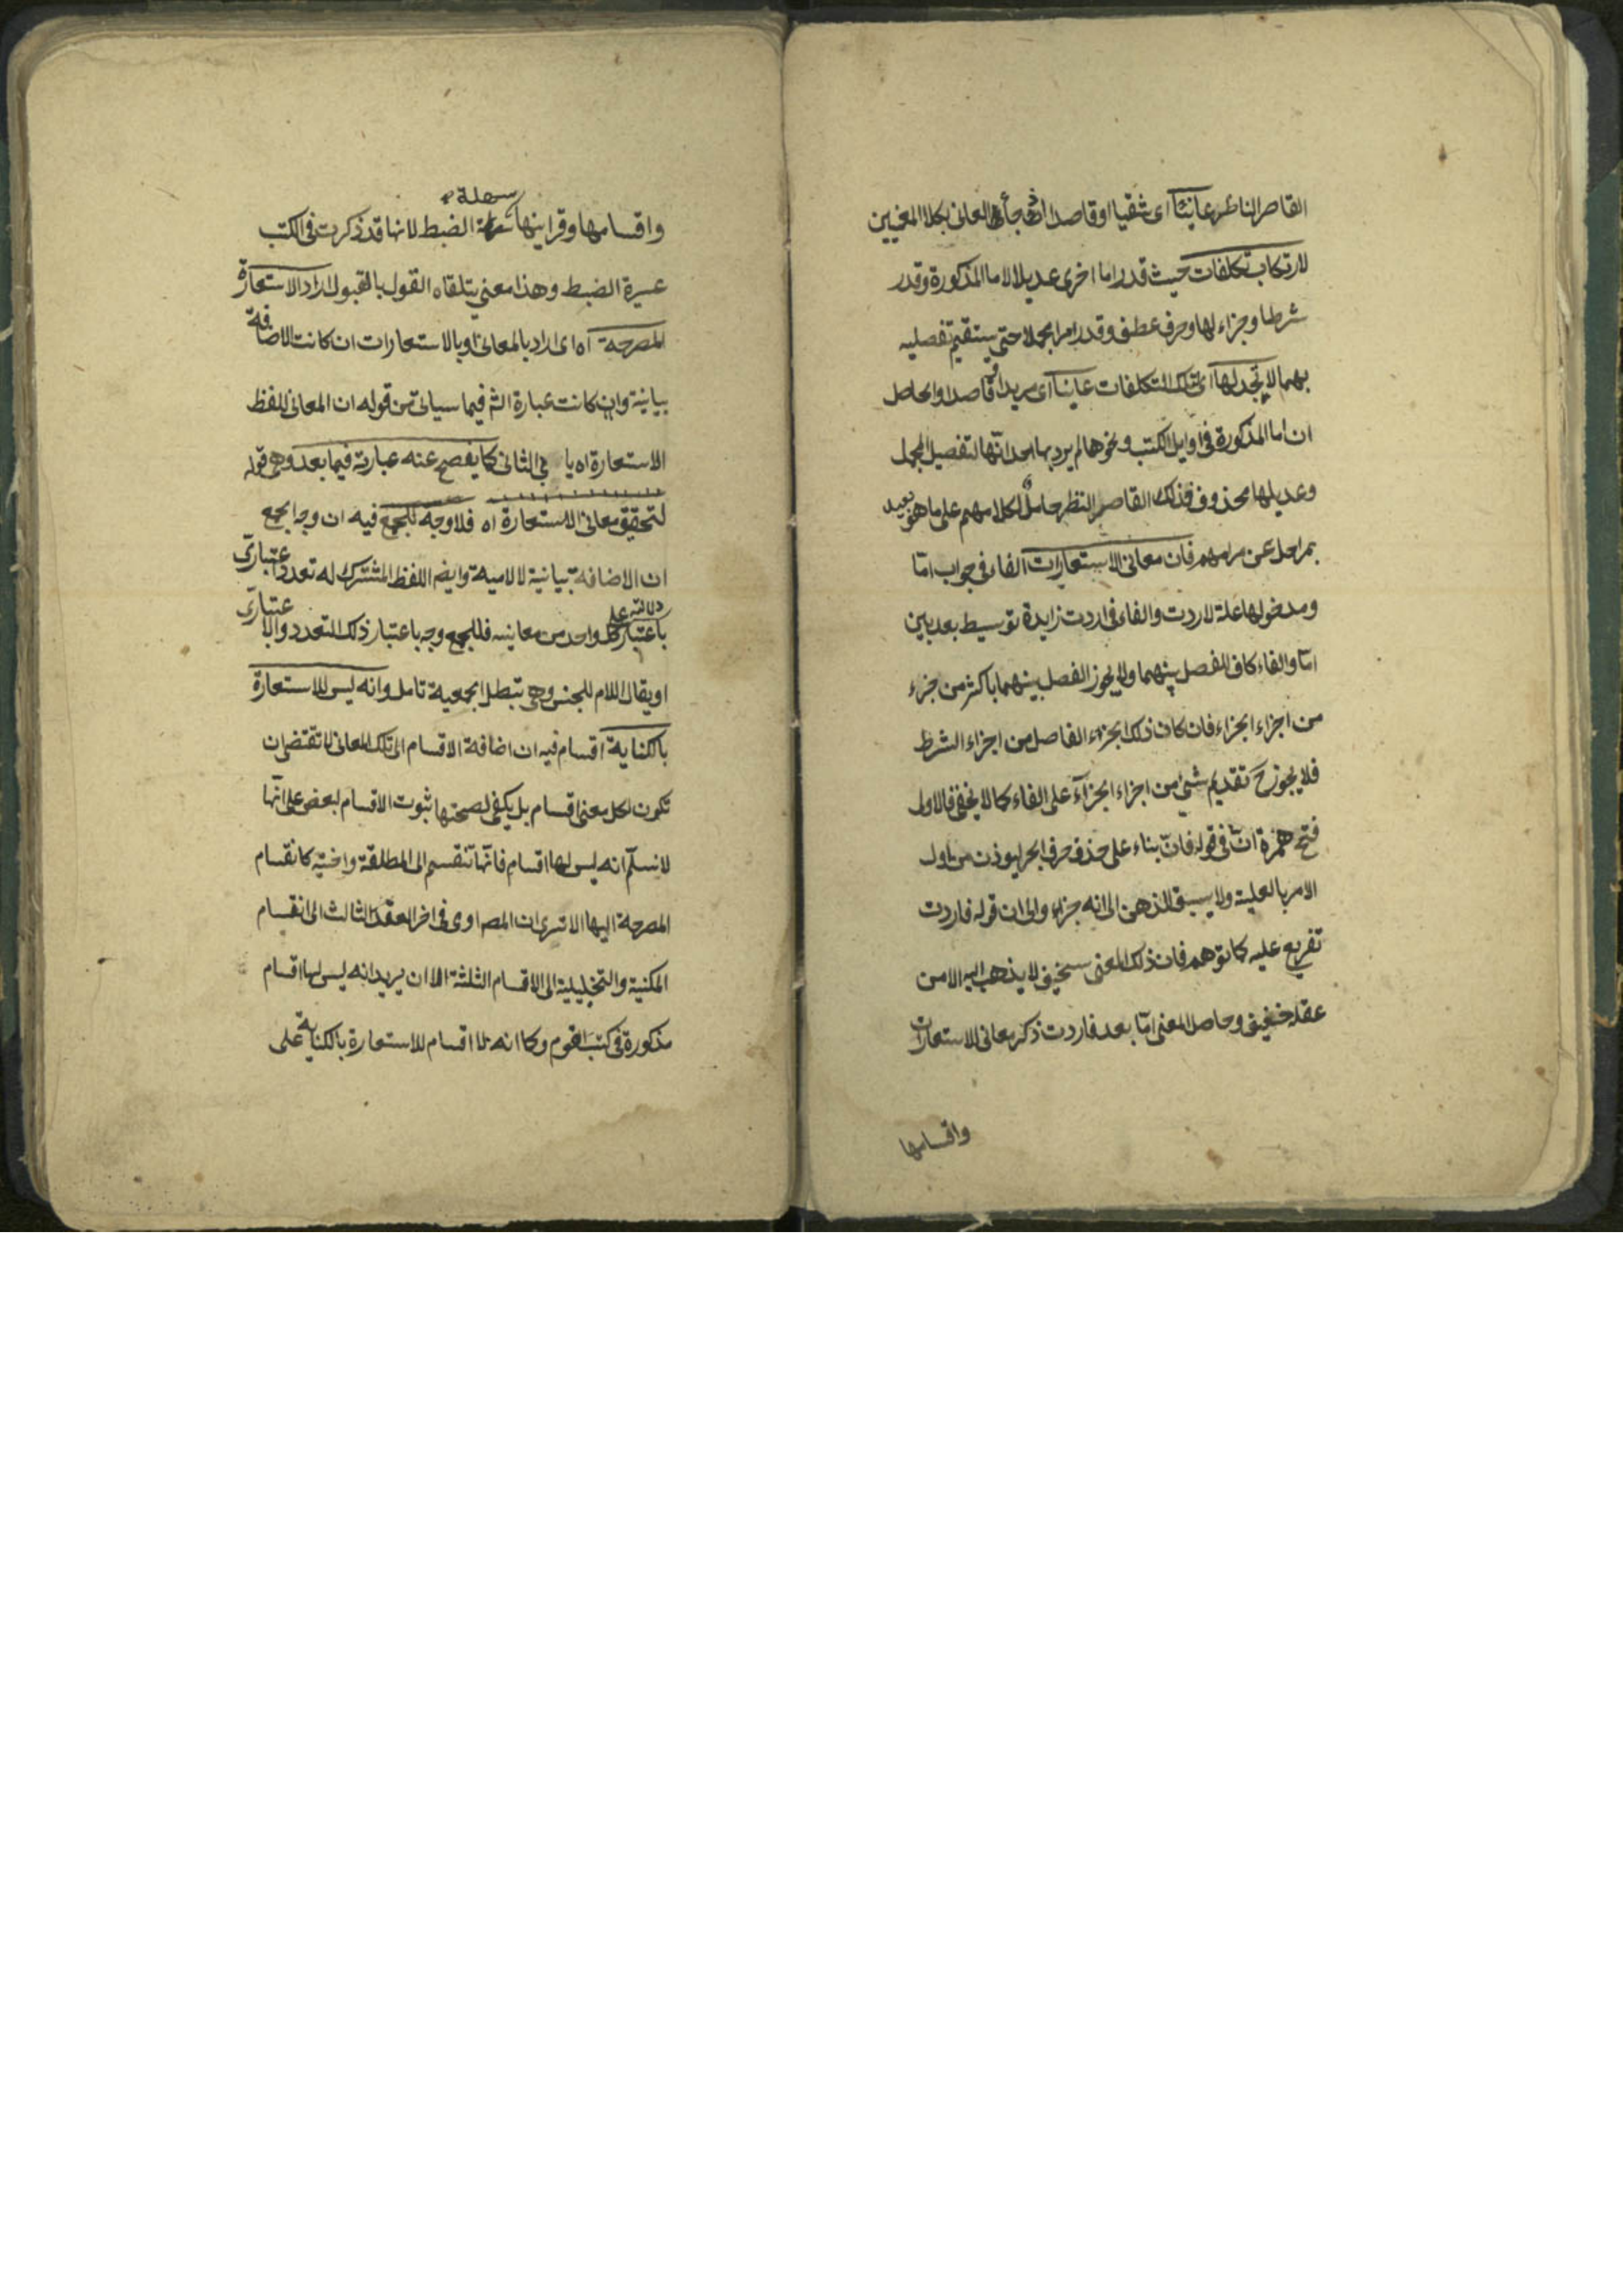 القاصر الناظر عانيتا اى شقيا او قاصدا اذ جأ المعانى بكلا المعنيين
لارتكاب تكلفات حيث قدر اما اخرى عديلا لاما المذكورة وقدر
شرطا وجزاء لها وحرف عطف وقدر امرا مجملا حتى يستقيم تفصيله
بهما لا تجد لها اى لتلك التكلفات عانيا اى مريدا وقاصدا والحاصل
ان اما المذكورة فى اوايل الكتب ونحوها لم يرد بها احد انها لتفصيل المجمل
وعديلها محذوف فذلك القاصر النظر حامل لكلامهم على ما هو بعيد
بمراحل عن مرامهم فان معانى الاستعارات الفاء فى جواب امّا
ومدخولها علة لاردت والفاء فى اردت زايدة توسيط بعد بين
امّا والفاء كاف للفصل بينهما ولا يجوز الفصل بينهما باكثر من جزء
من اجزاء الجزاء فان كان ذلك الجزء الفاصل من اجزاء الشرط
فلا يجوز ح تقديم شئ من اجزاء الجزاء على الفاء كما لا يخفى فالاول
فتح همزة انّ فى قوله فانّ بناء على حذف حرف الجر ليوذن من اول
الامر بالعلية ولا يسبق الذهن الى انه جزاء والى ان قوله فاردت
تفريع عليه كما توهم فان ذلك المعنى سخيف لا يذهب اليه الا من
عقله خفيف وحاصل المعنى امّا بعد فاردت ذكر معانى الاستعارات
واقسامها
سهلة
واقسامها وقراينها الضبط لانها قد ذكرت فى الكتب
عسيرة الضبط وهذا معنى يتلقاه القول بالقبول اراد الاستعارة
المصرحة اه اى اراد بالمعانى او بالاستعارات ان كانت الاضافة
بيانية وان كانت عبارة الش فيما سياتى من قوله ان المعانى للفظ
الاستعارة اه يا بى الثانى كما يفصح عنه عبارته فيما بعد وهى قوله
لتحقق معانى الاستعارة اه فلا وجه للجمع فيه ان وجه الجمع
ان الاضافة بيانية لا لامية وايضا اللفظ المشترك له تعدد اعتبارى
باعتبار دلالته على كل واحد من معانيه فللجمع وجه باعتبار ذلك التعدد والاعتبارى
او يقال اللام للجنس وهى تبطل الجمعية تامل وانه ليس للاستعارة
بالكناية اقسام فيه ان اضافة الاقسام الى تلك المعانى لا تقتضى ان
تكون لكل معنى اقسام بل يكفى لصحتها ثبوت الاقسام لبعض على انّا
لا نسلّم انه ليس لها اقسام فانّها تنقسم الى المطلقة واختيه كانقسام
المصرحة اليها الا ترى ان المص اومى فى اخر العقد الثالث الى انقسام
المكنية والتخييلية الى الاقسام الثلثة الا ان يريد انه ليس لها اقسام
مذكورة فى كتب القوم وكما انه لا اقسام للاستعارة بالكناية على